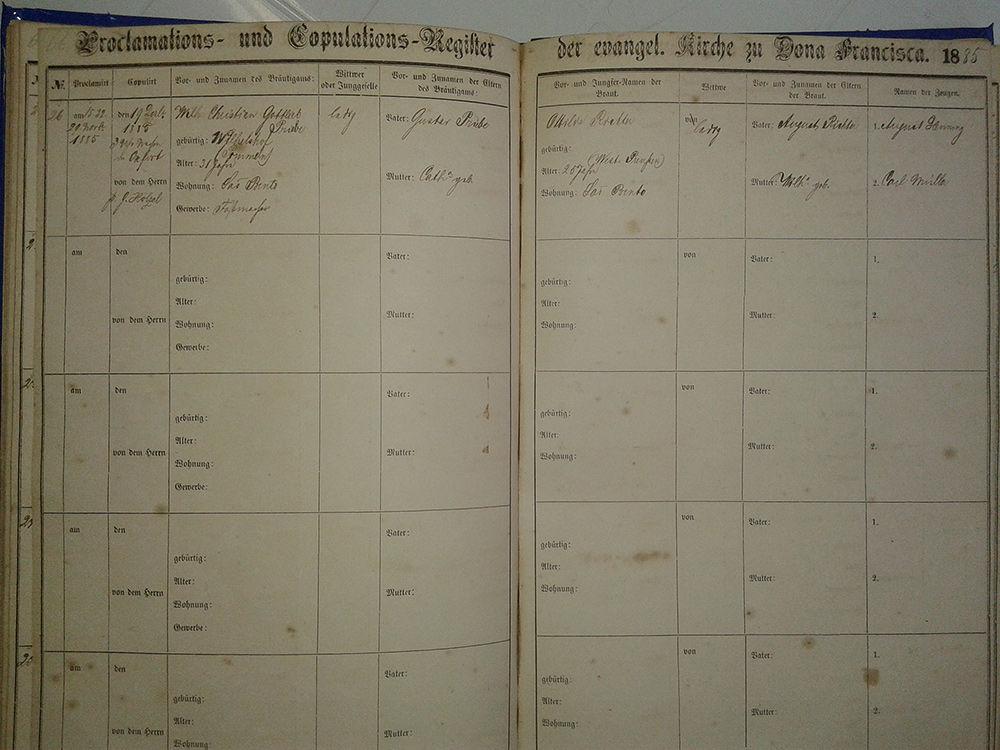 Proclamations- und Copulations-Register
der evangel. Kirche zu Dona Francisca. 1885
№. Proclamirt Copulirt Vor- und Zunamen des Bräutigams: Wittwer oder Junggeselle Vor- und Zunamen der Eltern des Bräutigams:
Vor- und Jungfer-Namen der Braut. Wittwe Vor- und Zunamen der Eltern der Braut. Namen der Zeugen.
26 am 15. 22. den 19 Wilh. Christian Gottlieb ledig Vater: Gustav Priebe
29 1885 1885 Priebe
gebürtig:
Alter: 31 Jahr
von dem Herrn Wohnung: Sao Bento Mutter: Cath. geb.
Gewerbe:
von ledig Vater: August 1. August
gebürtig: (West Preußen)
Alter: 26 Jahr
Wohnung: Sao Bento Mutter: Wilh. geb. 2. Carl Müller
am den Vater: von Vater: 1.
gebürtig: gebürtig:
Alter: Alter:
von dem Herrn Wohnung: Mutter: Wohnung: Mutter: 2.
Gewerbe:
am den Vater: von Vater: 1.
gebürtig: gebürtig:
Alter: Alter:
von dem Herrn Wohnung: Mutter: Wohnung: Mutter: 2.
Gewerbe:
am den Vater: von Vater: 1.
gebürtig: gebürtig:
Alter: Alter:
von dem Herrn Wohnung: Mutter: Wohnung: Mutter: 2.
Gewerbe:
am den Vater: von Vater: 1.
gebürtig: gebürtig:
Alter: Alter:
von dem Herrn Wohnung: Mutter: Wohnung: Mutter: 2.